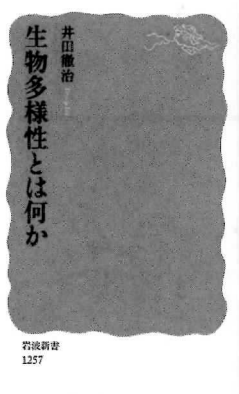 井田徹治
生物多様性とは何か
岩波新書
1257